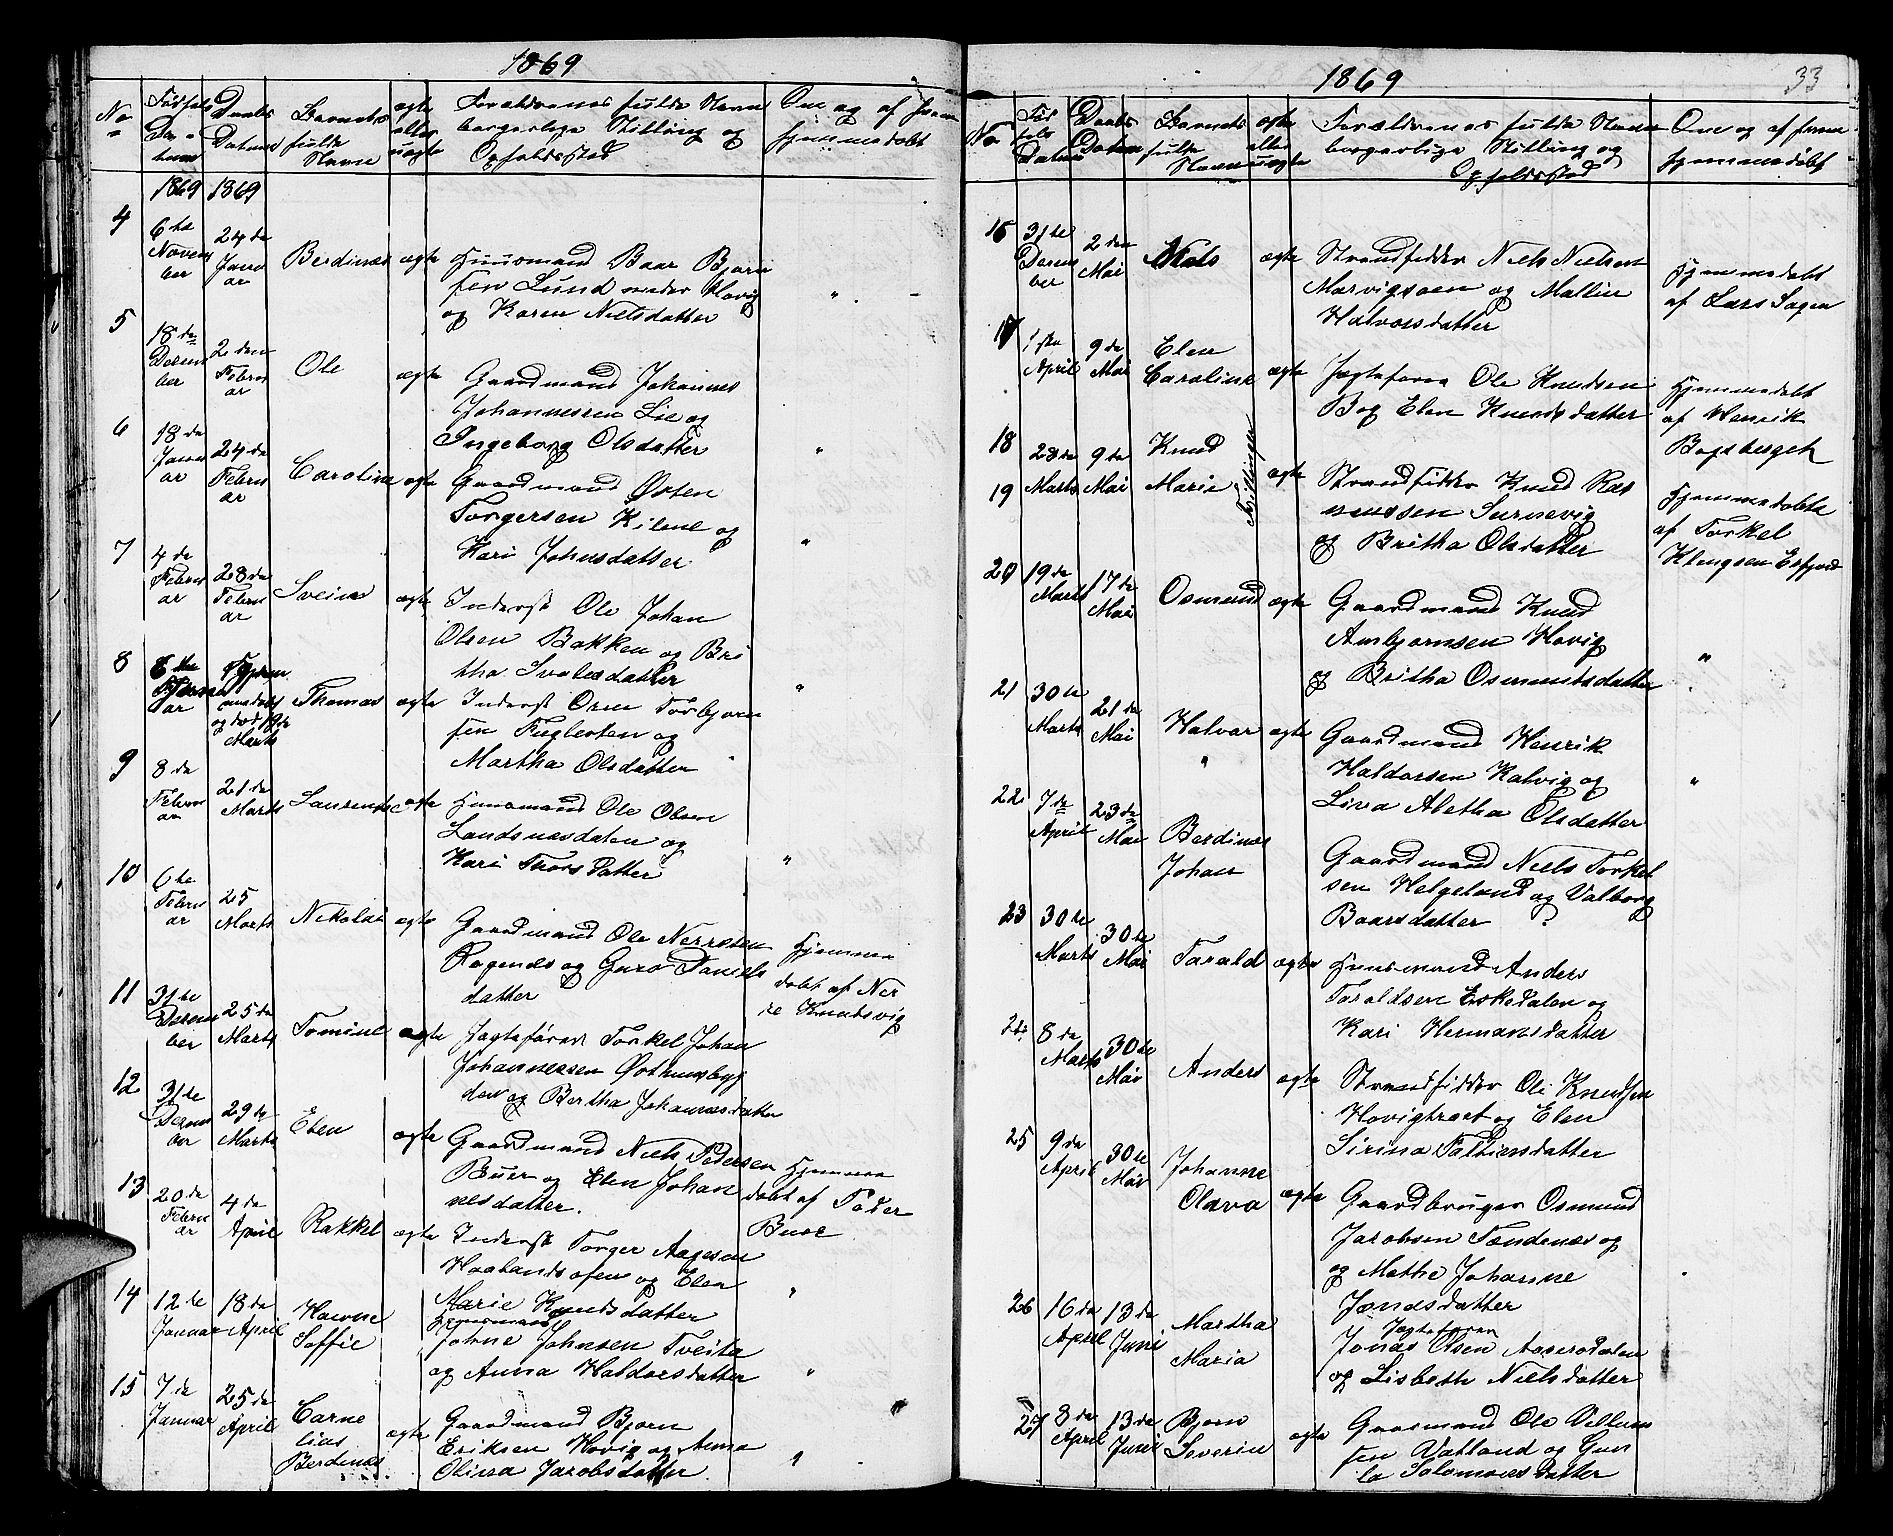 1869
No
Födsels Datum
Daabs Datum
Barnets fulde Navn
ægte eller uægte
Forældrenes fulde Navn borgerlige Stilling og Opholdssted
Om og af hvem hjemmedöbt
1869 1869
4 6te November 24de Januar Berdines ægte Huusmand Baar Bjørn
sen Lund under Hovig
og Karen Nielsdatter "
5 18de December 2den Februar Ole ægte Gaardmand Johannes
Johannessen Lie og
Ingeborg Olsdatter "
6 18de Januar 24de Februar Carolina ægte Gaardmand Østen
Torgersen Kilene og
Kari Johnsdatter "
7 4de Februar 28de Februar Svein ægte Inderst Ole Johan
Olsen Bakken og Bri
tha Svalesdatter "
8 Januar Hjem
medöbt
og död 19de
Marts Thomas ægte Inderst Oren Torbjørn
sen Fuglesten og
Martha Olsdatter "
9 8de Februar 21de Marts Laurents ægte Huusmand Ole Olsen
Landsnæsdalen og
Kari Thorsdatter "
10 6te Februar 25 Marts Nikolai ægte Gaardmand Ole Nerresen
Ragenæs og Guro Daniels
datter Hjemme
döbt af Ner
re Knutsvig
11 31te December 25de Marts Tomine ægte Jagtefører Torkel Johan
Johannessen Østhunsbyg
den og Bertha Johannesdatter
12 31te December 29de Marts Elen ægte Gaardmand Niels Pedersen
Buer og Elen Johan
nesdatter. Hjemme
döbt af Peder
Bue
13 20de Februar 4de April Rakkel ægte Inderst Torger Aagesen
Haalandsosen og Elen
Marie Knudsdatter "
14 12te Januar 18de April Havne
Soffie Huusmand
Johne Johnsen Tveita
og Anna Haldorsdatter "
15 7de Januar 25de April Carne
lius
Berdenes ægte Gaardmand Bjørn
Eriksen Hovig og Anna
Olina Jacobsdatter "
1869 33
No
Födsels Datum
Daabs Datum
Barnets fulde Navn
ægte eller uægte
Forældrenes fulde Navn borgerlige Stilling og Opholdssted
Om og af hvem hjemmedöbt
16 31te December 2den Mai Niels ægte Strandsidder Niels Nielsen
Marvigsoen og Mallin
Halvorsdatter Hjemmedöbt
af Lars Sagen
17 1ste April 9de Mai Elen
Caroline ægte Jagtefører Ole Knudsen
Bog Elen Knudsdatter Hjemmedöbt
af Henrik
Bogsberget
18 28de Marts 9de Mai Knud
19 Marie Tvillinger ægte Strandsidder Knud Ras
mussen Surnevig
og Britha Olsdatter Hjemmedöbte
af Torkel
Klungsen Esfjord
20 19de Marts 17de Mai Osmund ægte Gaardmand Knud
Ambjørnsen Hovig
og Britha Osmundsdatter "
21 30te Marts 21de Mai Halvar ægte Gaardmand Henrik
Haldorsen Kalvig og
Liva Aletha Olsdatter "
22 7de April 23de Mai Berdines
Johan Gaardmand Niels Torkel
sen Helgeland og Valborg
Baarsdatter
23 30te Marts 30te Mai Tarald ægte Huusmand Anders
Taraldsen Eskedalen og
Kari Hermansdatter
24 8de Marts 30te Mai Anders ægte Strandsidder Ole Knudsen
Hovigtræet og Elen
Sirina Faltinsdatter
25 9de April 30te Mai Johanne
Olava ægte Gaardbruger Osmund
Jacobsen Tændenæs og
og Methe Johanne
Jonasdatter
26 16de April 13de Juni Martha
Maria Jagtefører
Jonas Olsen Aaserødalen
og Lisbeth Nielsdatter
27 8de April 13de Juni Bjørn
Severin ægte Gaarmand Ole Villum
sen Vatland og Gun
la Salomonsdatter